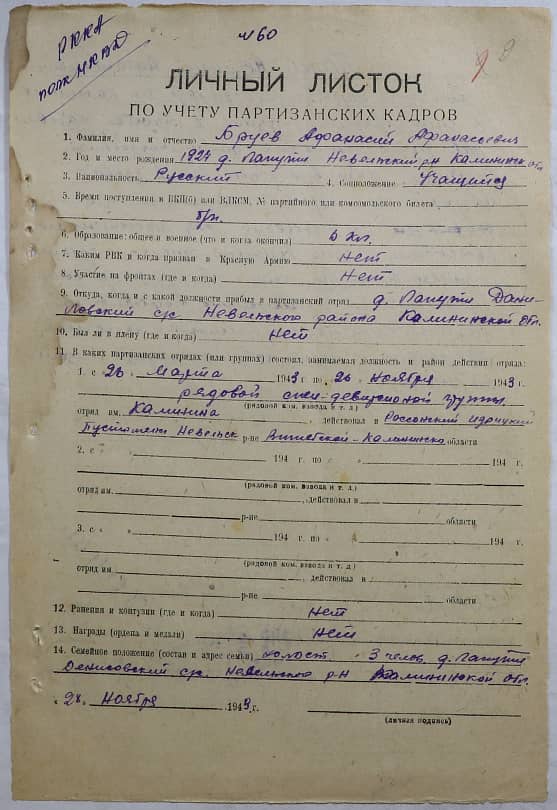 РККА
полк НКВД
№ 60
9
ЛИЧНЫЙ ЛИСТОК
ПО УЧЕТУ ПАРТИЗАНСКИХ КАДРОВ
1. Фамилия, имя и отчество Бруев Афанасий Афанасьевич
2. Год и место рождения 1924 д. Лапутин Невельский р-н Калининск. обл.
3. Национальность Русский 4. Соцположение Учащийся
5. Время поступления в ВКП(б) или ВЛКСМ, № партийного или комсомольского билета
б/п.
6. Образование: общее и военное (что и когда окончил) 6 кл.
7. Каким РВК и когда призван в Красную Армию нет
8. Участие на фронтах (где и когда) нет
9. Откуда, когда и с какой должности прибыл в партизанский отряд д. Лапутин
с/с. Невельского района Калининской обл.
10. Был ли в плену (где и когда) нет
11. В каких партизанских отрядах (или группах) состоял, занимаемая должность и район действия отряда:
1. с 26 Марта 1943 г по 26 Ноября 1943 г.
рядовой группы
(рядовой ком. взвода и т. д.)
отряд им. Калинина, действовал в Россонский Идрицкий
Пустошкен Невельск р-не области
2. с „ „ 194 г. по „ „ 194 г.
(рядовой ком. взвода и т. д.)
отряд им. , действовал в
р-не области
3. с „ „ 194 г. по „ „ 194 г.
(рядовой ком. взвода и т. д.)
отряд им. , действовал в
р-не области
12. Ранения и контузии (где и когда) нет
13. Награды (ордена и медали) нет
14. Семейное положение (состав и адрес семьи) холост 3 челов. д. Лапутин
Денисовский с/с. Невельского р-н Калининской обл.
„28„ Ноября 1943 г.
(личная подпись)